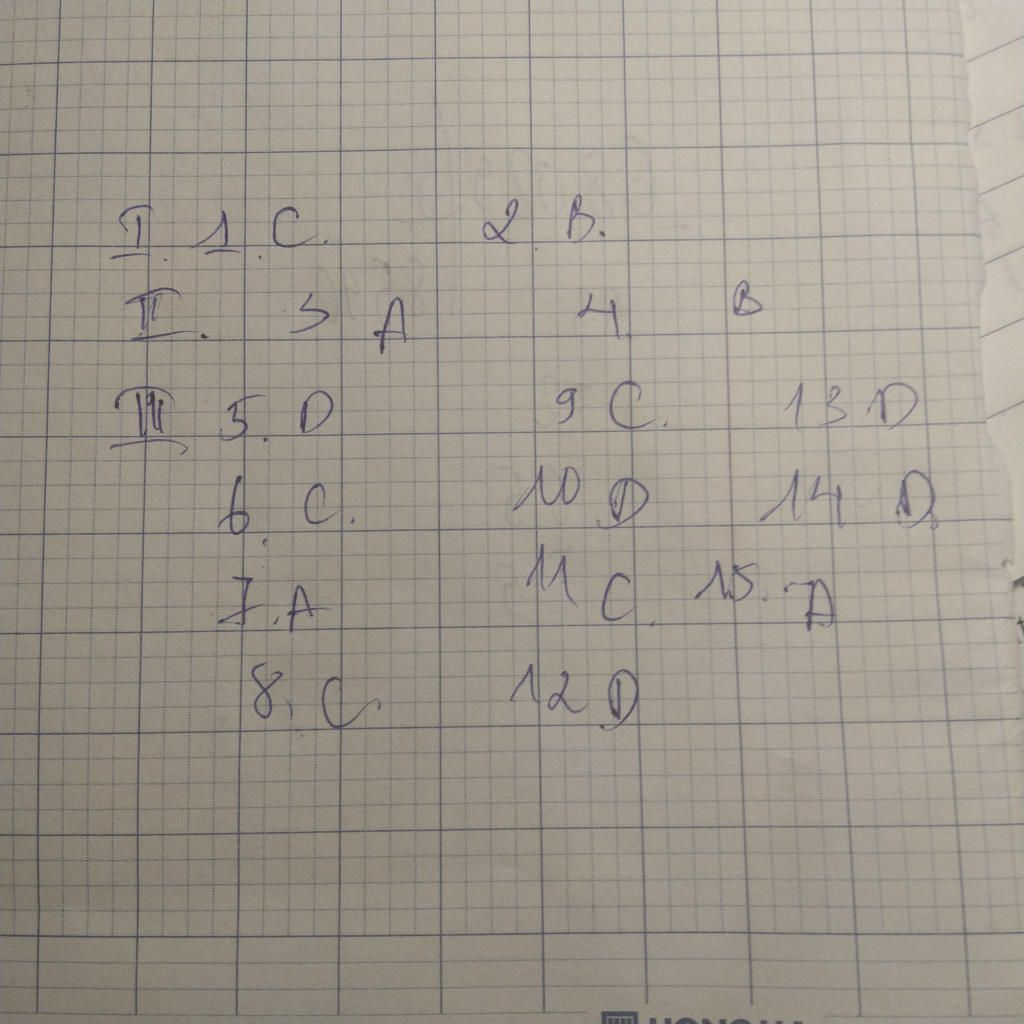 I. 1. C. 2. B.
II. 3 A 4. B
III 5. D 9 C. 13 D
6. C. 10 D 14 D.
7. A 11 C. 15. A
8. C. 12 D